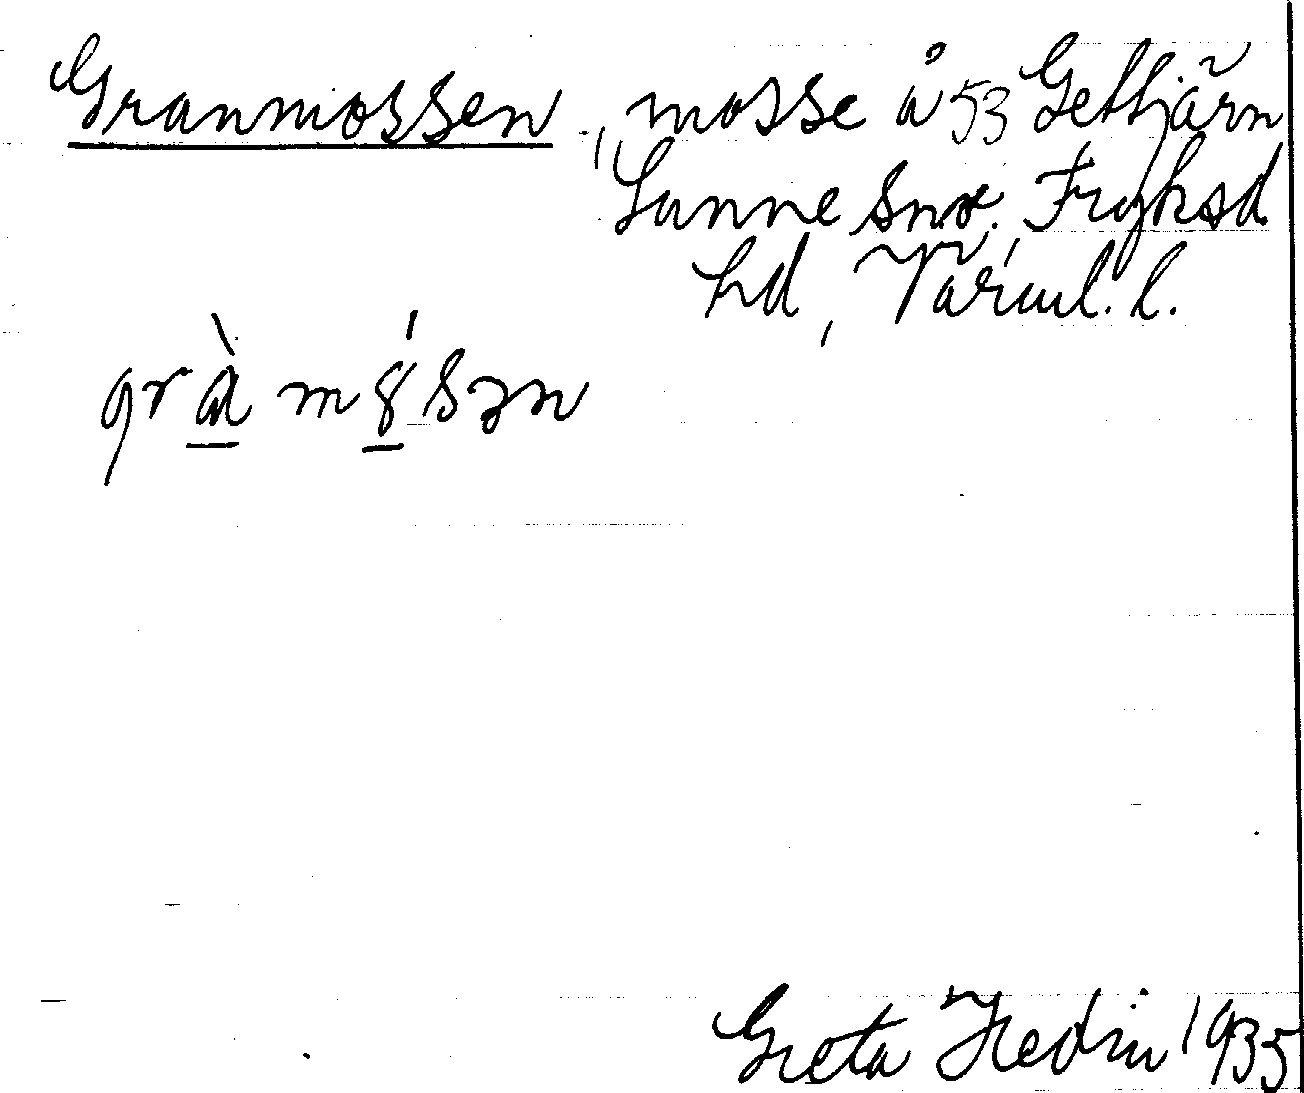 Granmossen, mosse å 53 Gettjärn
Sunne snr, Fryksd.
hd, Värml. l.
grà m ǿ sən
Greta Hedin 1935